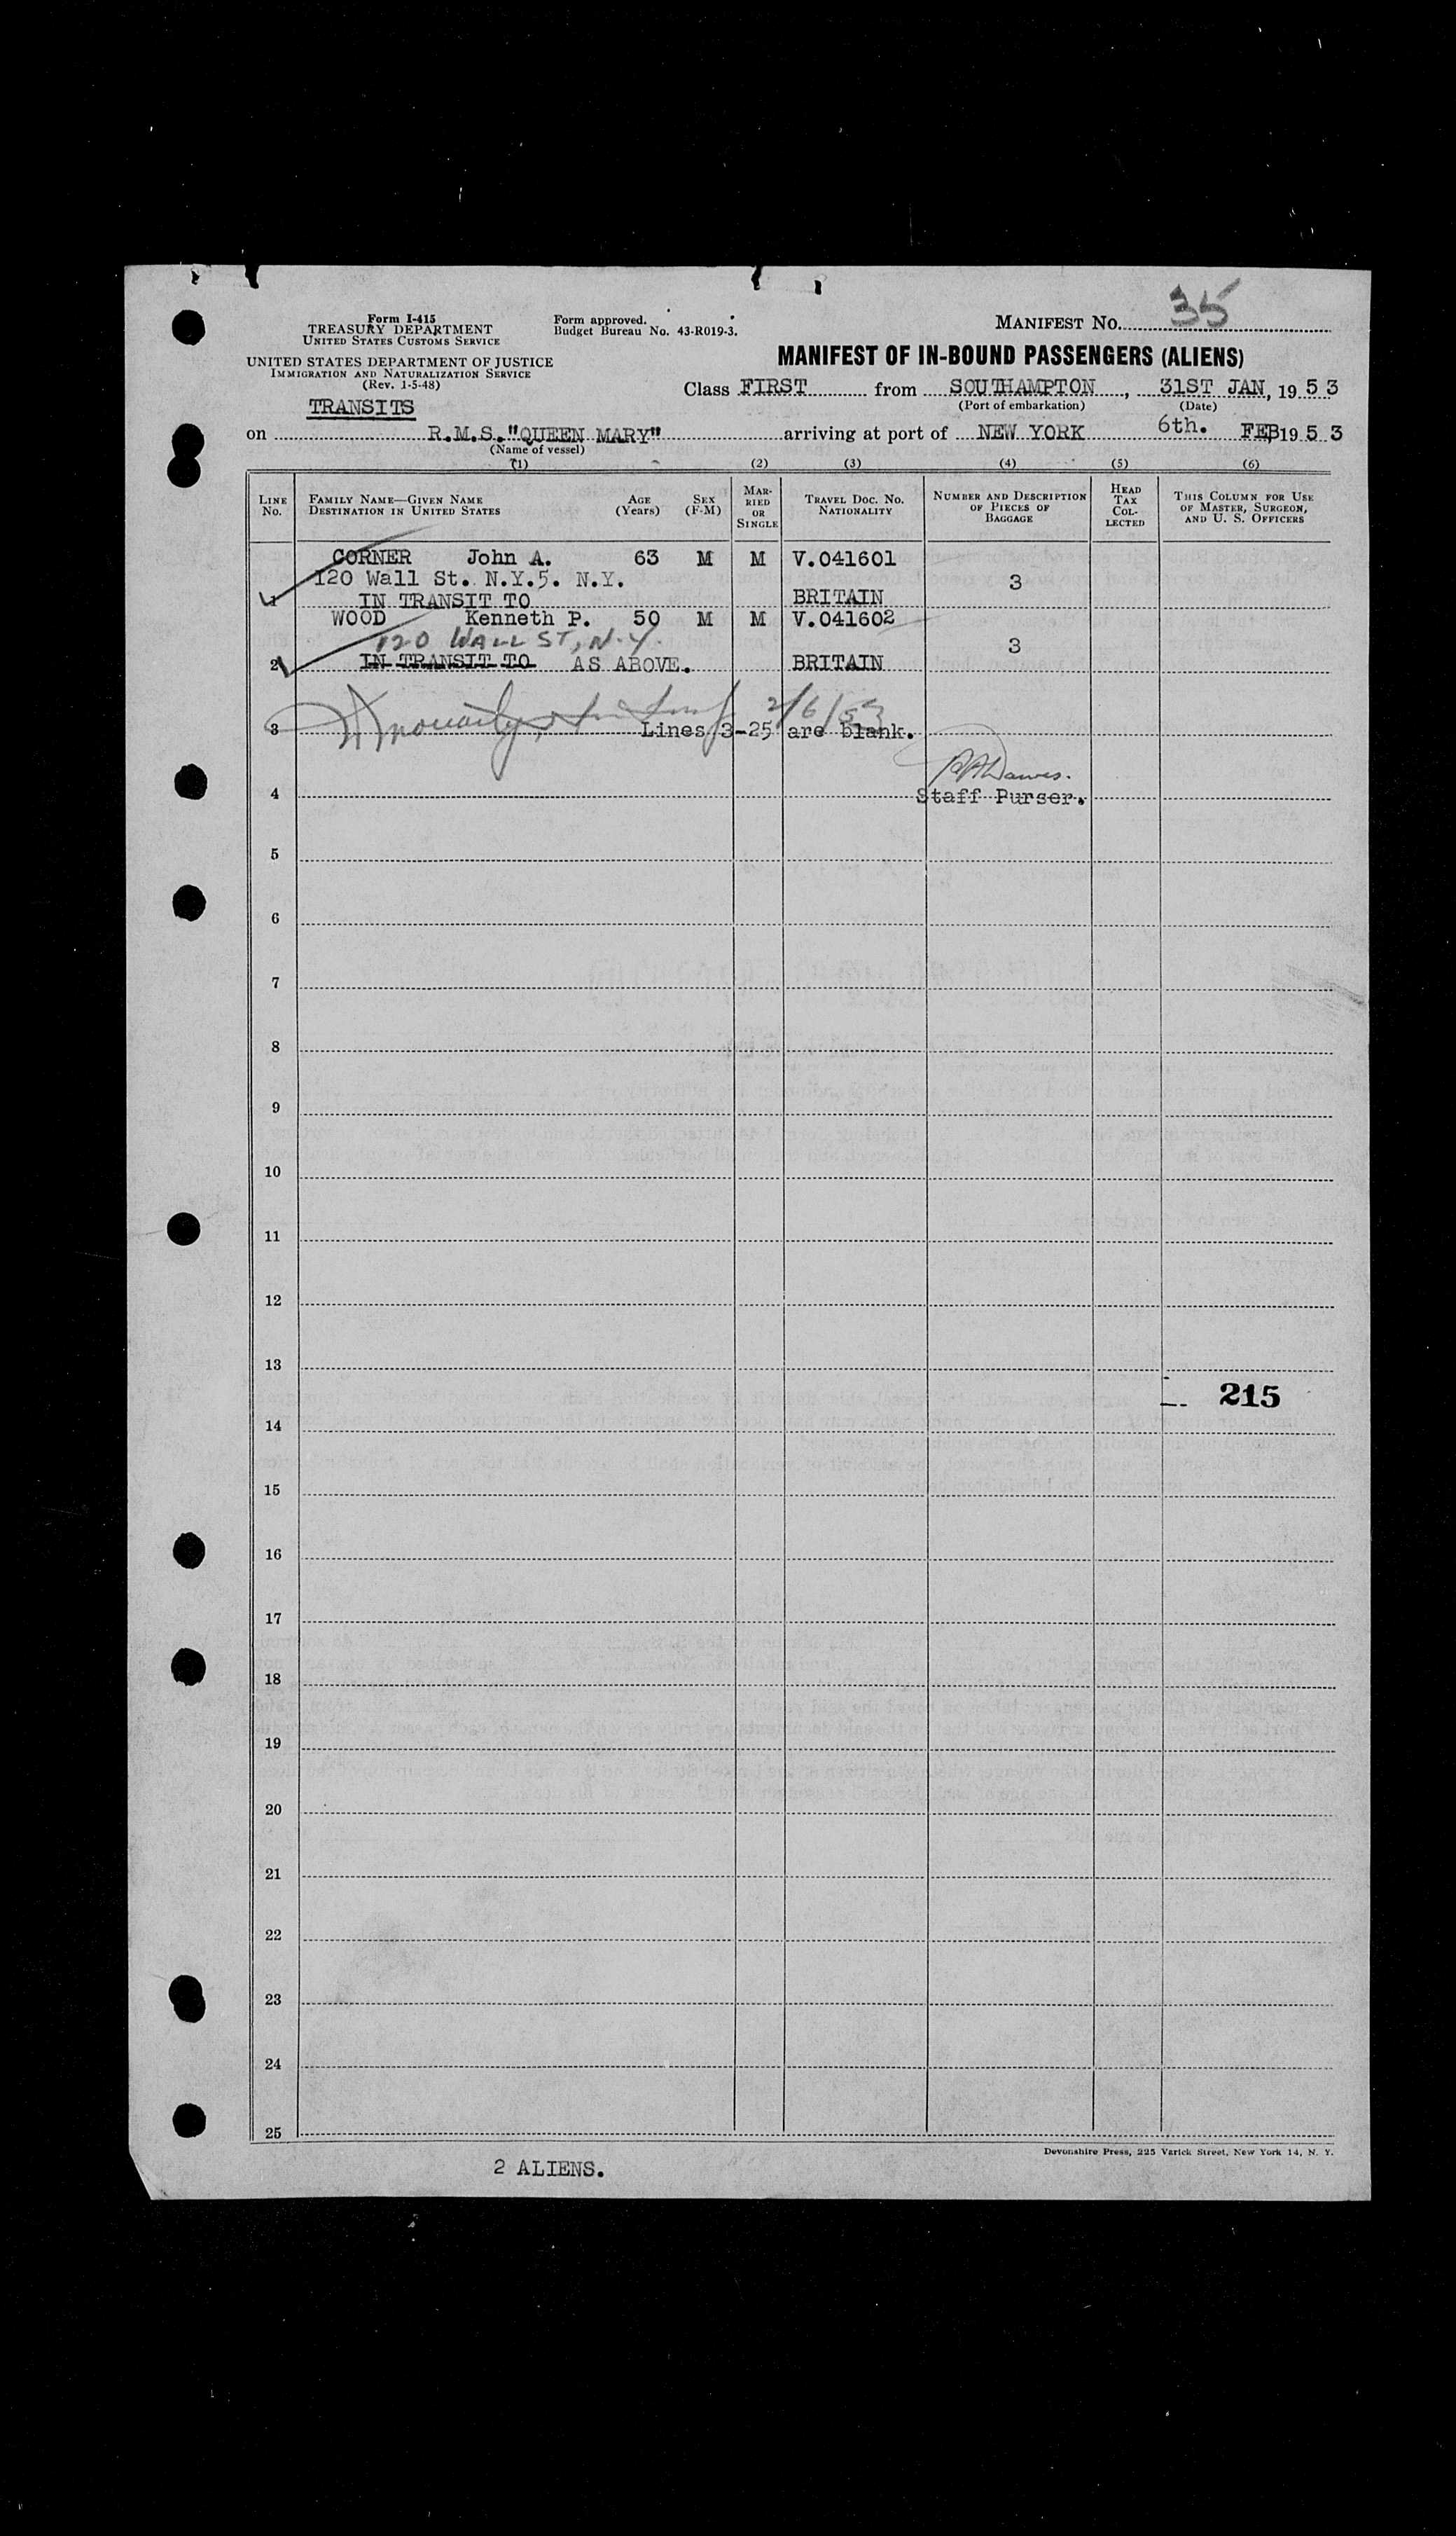 35
Form I-415
TREASURY DEPARTMENT
UNITED STATES CUSTOMS SERVICE
Form approved.
Budget Bureau No. 43-R019-3.
MANIFEST NO.
UNITED STATES DEPARTMENT OF JUSTICE
IMMIGRATION AND NATURALIZATION SERVICE
(Rev. 1-5-48)
MANIFEST OF IN-BOUND PASSENGERS (ALIENS)
Class FIRST from SOUTHAMPTON, 31ST JAN, 1953
(Port of embarkation) (Date)
TRANSITS
on R.M.S."QUEEN MARY" arriving at port of NEW YORK 6th. FEB 1953
(Name of vessel)
(1) (2) (3) (4) (5) (6)
LINE NO.
FAMILY NAME—GIVEN NAME
DESTINATION IN UNITED STATES
AGE (Years)
SEX (F-M)
MARRIED OR SINGLE
TRAVEL DOC. NO.
NATIONALITY
NUMBER AND DESCRIPTION OF PIECES OF BAGGAGE
HEAD TAX COLLECTED
THIS COLUMN FOR USE OF MASTER, SURGEON, AND U. S. OFFICERS
CORNER John A. 63 M M V.041601
120 Wall St. N.Y.5. N.Y. 3
1 IN TRANSIT TO BRITAIN
WOOD Kenneth P. 50 M M V.041602
120 WALL ST, N.Y. 3
2 IN TRANSIT TO AS ABOVE. BRITAIN
2/6/53
3 Lines 3-25 are blank.
4 Staff Purser.
5
6
7
8
9
10
11
12
13
215
14
15
16
17
18
19
20
21
22
23
24
25
Devonshire Press, 225 Varick Street, New York 14, N. Y.
2 ALIENS.